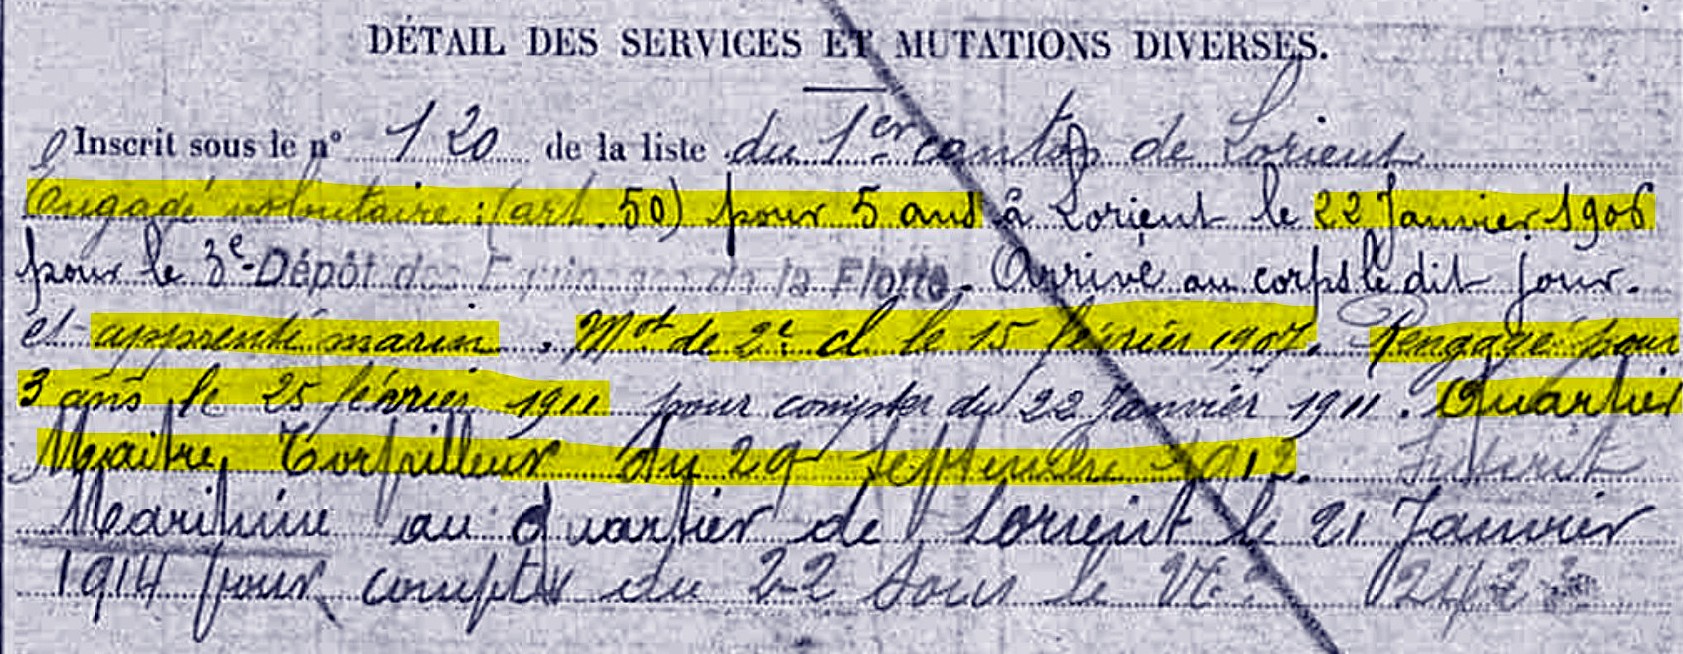 DÉTAIL DES SERVICES ET MUTATIONS DIVERSES.
Inscrit sous le n° 120 de la liste du 1er canton de Lorient
Engagé volontaire : (art. 50) pour 5 ans à Lorient le 22 Janvier 1906
pour le 3e Dépôt des Equipages de la Flotte. Arrivé au corps le dit jour.
et apprenti marin. Mot de 2e cl le 15 février 1907. Rengagé pour
3 ans le 25 février 1911 pour compter du 22 Janvier 1911. Quartier
Maitre Torpilleur du 29 Septembre 1912. Inscrit
Maritime au quartier de Lorient le 21 Janvier
1914 pour compter du 22 sous le